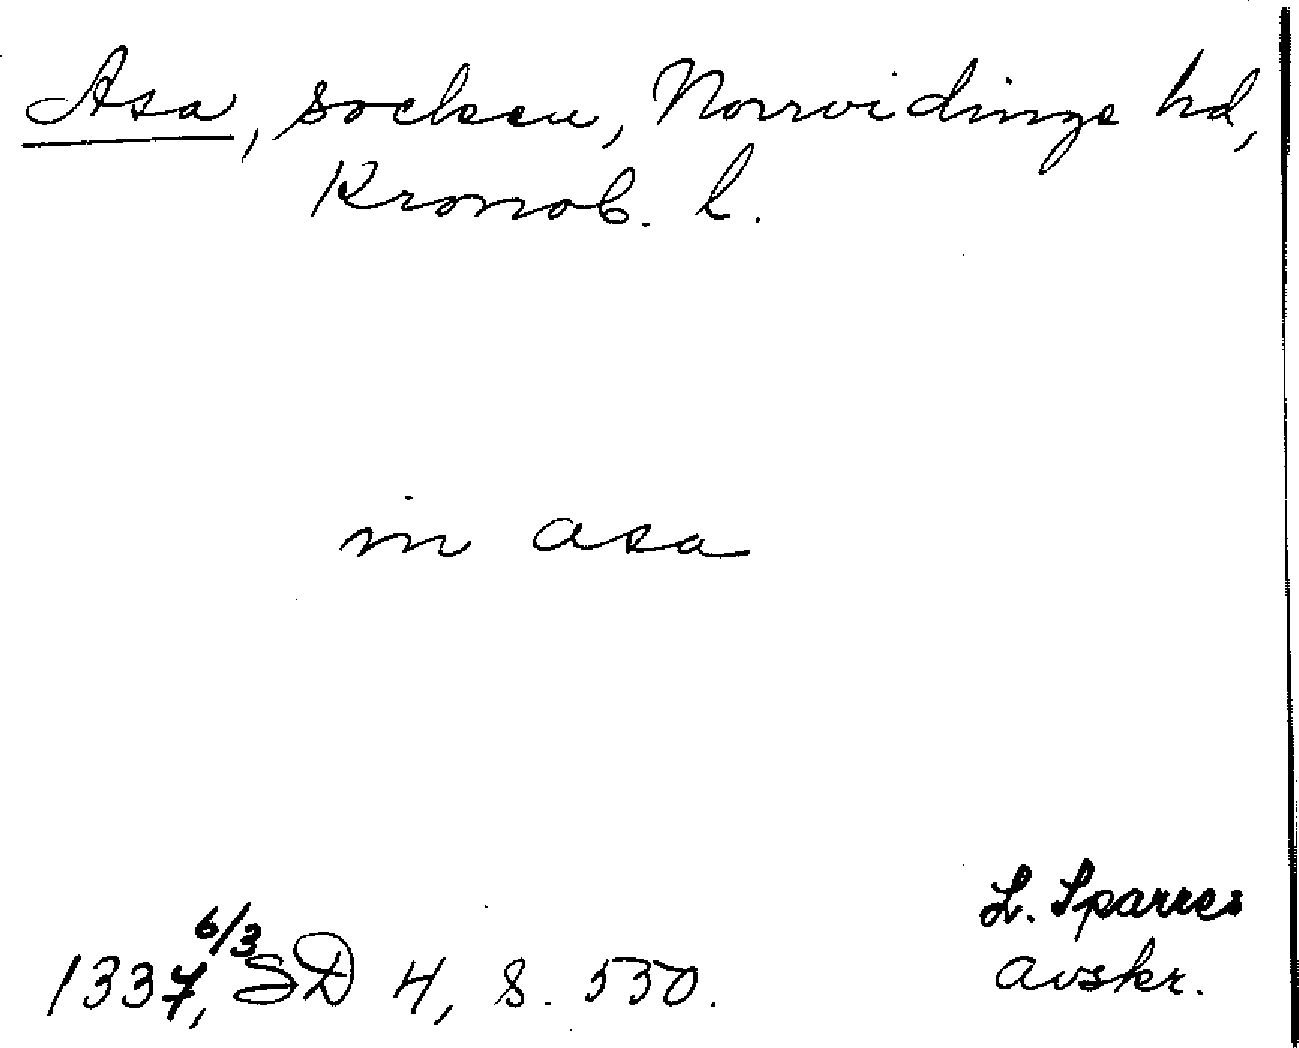 Asa, socken, Norrvidinge hd,
Kronob. l.
in asa
L. Sparres
avskr.
1337, 6/3 SD 4, s. 550.